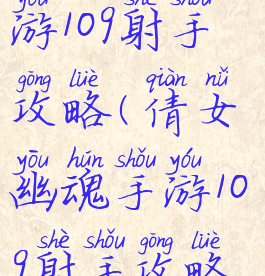 yóu shè shǒu
游109射手
gōng lüè qiàn nǚ
攻略(倩女
yōu hún shǒu yóu
幽魂手游10
shè shǒu gōng lüè
9射手攻略